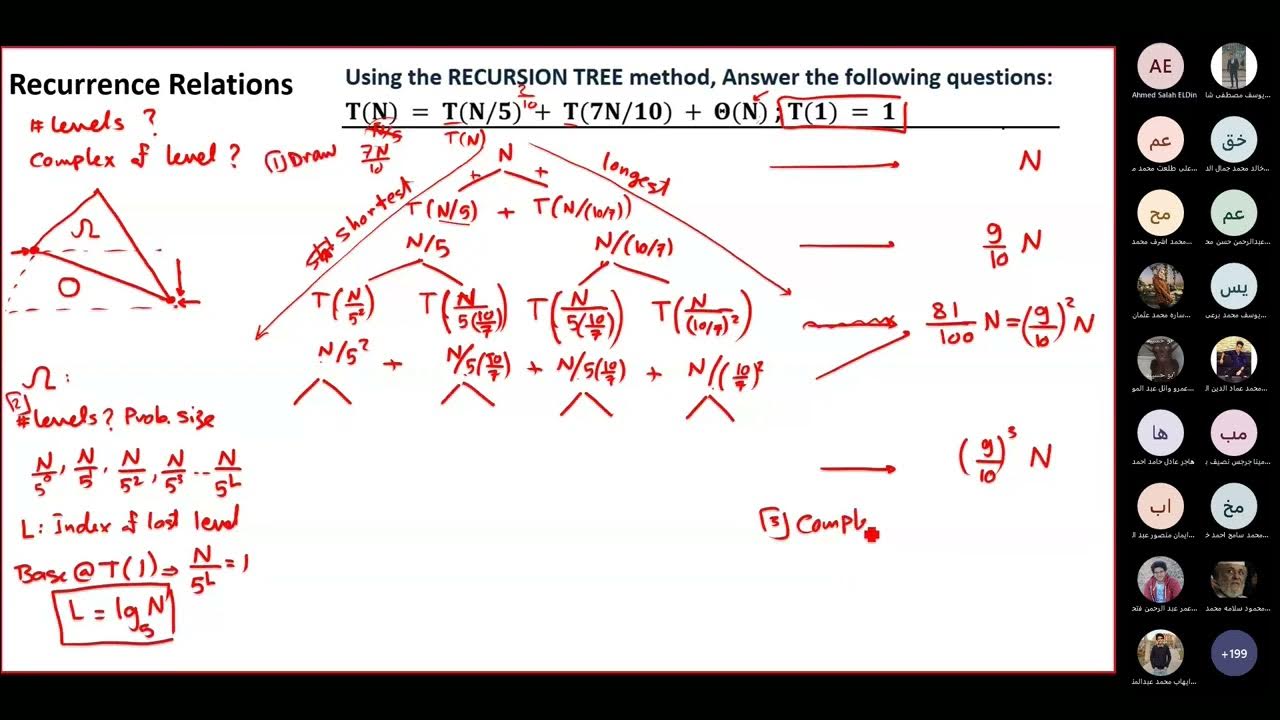 Recurrence Relations
Using the RECURSION TREE method, Answer the following questions:
2/10
T(N) = T(N/5) + T(7N/10) + Θ(N) ; T(1) = 1
# Levels ?
Complex of level ?
(1) Draw
7N/10
T(N)
N
N
+ +
shortest
longest
T(N/5) + T(N/(10/7))
N/5
N/(10/7)
9/10 N
Ω
O
T(N/5²) T(N/5(10/7)) T(N/5(10/7)) T(N/(10/7)²)
81/100 N = (9/10)² N
N/5² + N/5(10/7) + N/5(10/7) + N/(10/7)²
Ω :
[2]
# Levels ? Prob. size
N/5⁰, N/5, N/5², N/5³ -- N/5ᴸ
(9/10)³ N
L : Index of last level
[3] Comple
Base @ T(1) ⇒ N/5ᴸ = 1
L = log₅ N
AE
Ahmed Salah ELDin
يوسف مصطفى شا...
عم
خق
على طلعت محمد م...
خالد محمد جمال الد...
مح
عم
محمد اشرف محمد...
عبدالرحمن حسن مح...
يس
ساره محمد عثمان...
يوسف محمد برعى...
ابو حسيبه
عمرو وائل عبد المو...
محمد عماد الدين ال...
ها
مب
هاجر عادل حامد احمد...
مينا جرجس نصيف ب...
اب
مخ
ايمان منصور عبد ال...
محمد سامح احمد خ...
عمر عبد الرحمن فتح...
محمود سلامه محمد...
+199
ايهاب محمد عبدالمن...